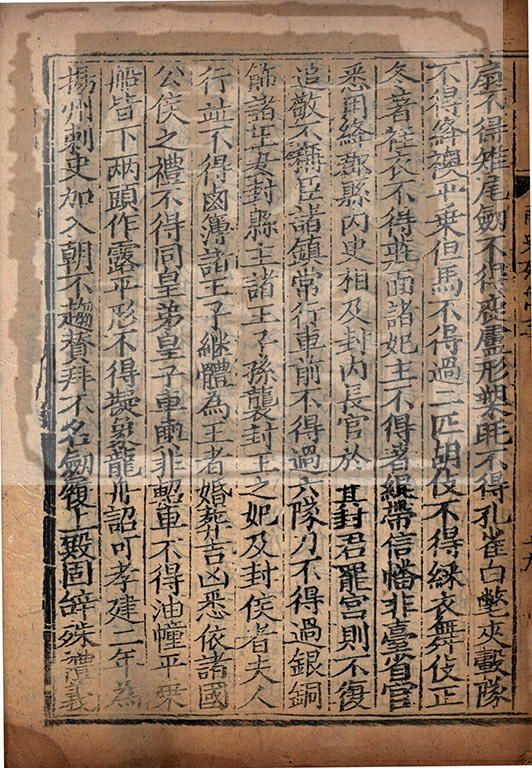 扇不得雉尾劒不得鹿盧形槊毦不得孔雀白氅夾轂隊
不得絳襖平乗但馬不得過二匹胡伎不得綵衣舞伎正
冬著袿衣不得莊面諸妃主不得著緄帶信幡非臺省官
悉用絳郡縣內史相及封內長官於其封君罷官則不復
追敬不稱臣諸鎮常行車前不得過六隊刀不得過銀銅
飾諸王女封縣主諸王子孫襲封王之妃及封侯者夫人
行並不得鹵簿諸王子繼體為王者婚葬吉凶悉依諸國
公侯之禮不得同皇弟皇子車轝非軺車不得油幢平乗
船皆下兩頭作露平形不得擬象龍舟詔可孝建二年為
揚州刺史加入朝不趨賛拜不名劒履上殿固辭殊禮義